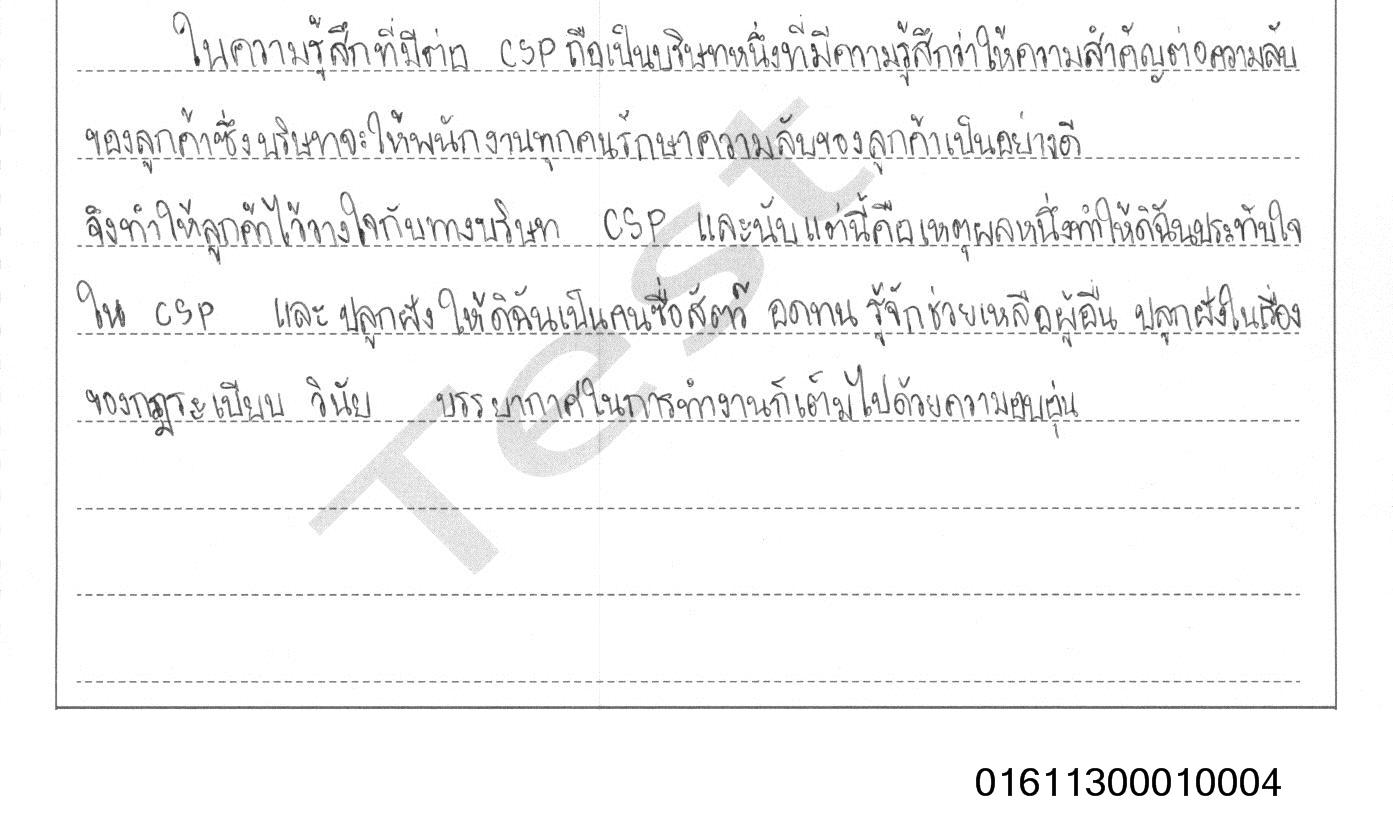 ในความรู้สึกที่มีต่อ CSP ถือเป็นบริษัทหนึ่งที่มีความรู้สึกว่าให้ความสำคัญต่อความลับ
ของลูกค้าซึ่งบริษัทจะให้พนักงานทุกคนรักษาความลับของลูกค้าเป็นอย่างดี
จึงทำให้ลูกค้าไว้วางใจกับทางบริษัท CSP และนับแต่นี้คือเหตุผลหนึ่งทำให้ดิฉันประทับใจ
ใน CSP และปลูกฝังให้ดิฉันเป็นคนซื่อสัตว์ อดทน รู้จักช่วยเหลือผู้อื่น ปลูกฝังในเรื่อง
ของกฎระเบียบ วินัย บรรยากาศในการทำงานก็เต็มไปด้วยความอบอุ่น
Test
01611300010004